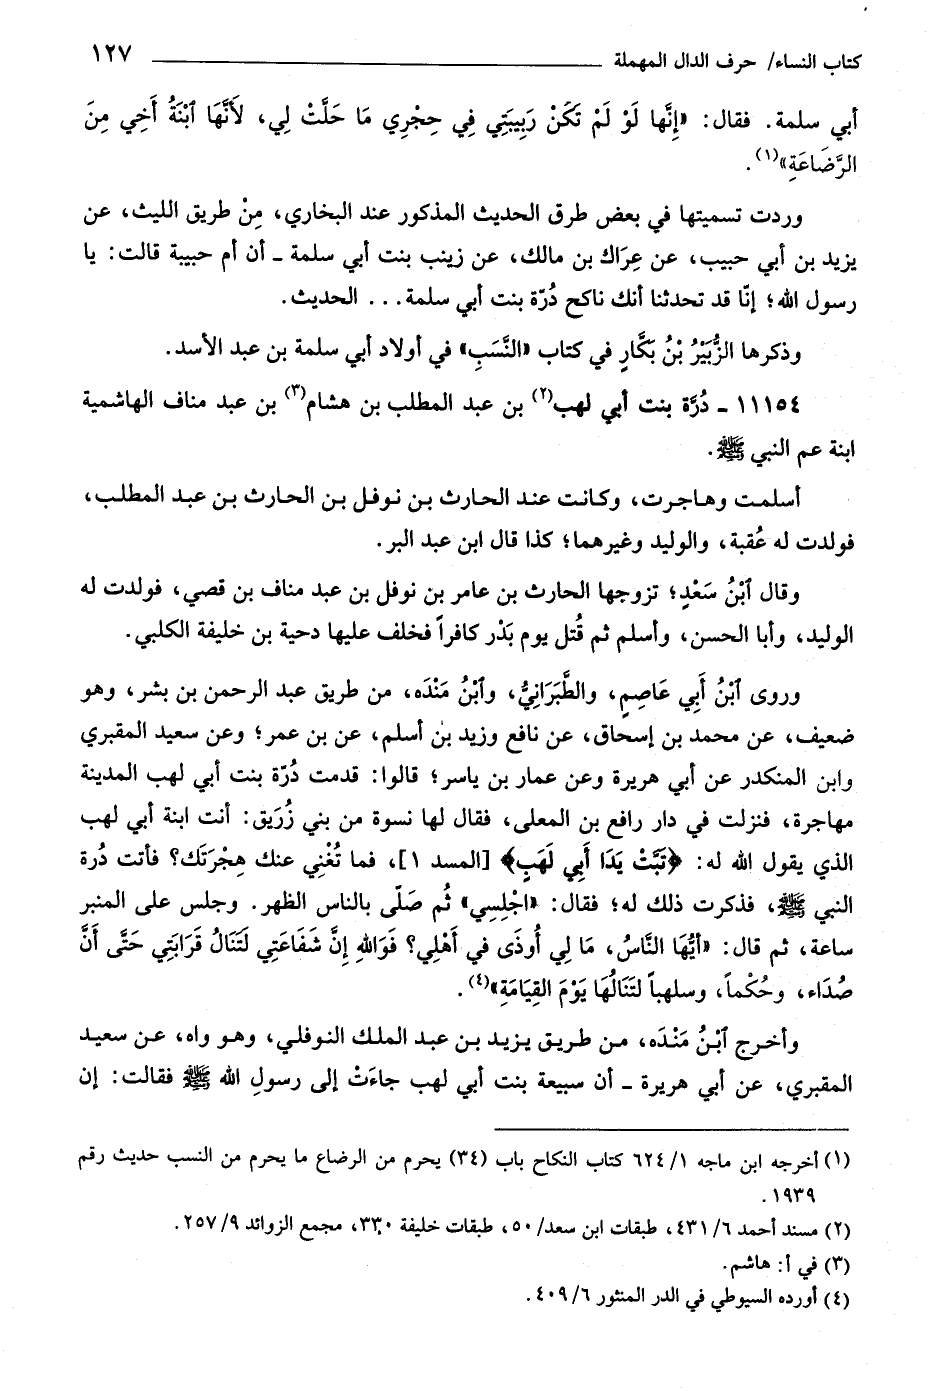 كتاب النساء/ حرف الدال المهملة ١٢٧
أبي سلمة. فقال: «إِنَّها لَوْ لَمْ تَكَنْ رَبِيبَتِي فِي حِجْرِي مَا حَلَّتْ لِي، لَأَنَّهَا ٱبْنَةُ أَخِي مِنَ
الرَّضَاعَةِ»(١).
وردت تسميتها في بعض طرق الحديث المذكور عند البخاري، مِنْ طريق الليث، عن
يزيد بن أبي حبيب، عن عِرَاك بن مالك، عن زينب بنت أبي سلمة ـ أن أم حبيبة قالت: يا
رسول الله؛ إنّا قد تحدثنا أنك ناكح دُرّة بنت أبي سلمة... الحديث.
وذكرها الزُّبَيْرُ بْنُ بَكَّارٍ في كتاب «النَّسَبِ» في أولاد أبي سلمة بن عبد الأسد.
١١١٥٤ ـ دُرَّة بنت أبي لهب(٢) بن عبد المطلب بن هشام(٣) بن عبد مناف الهاشمية
ابنة عم النبي ﷺ.
أسلمت وهاجرت، وكانت عند الحارث بن نوفل بن الحارث بن عبد المطلب،
فولدت له عُقبة، والوليد وغيرهما؛ كذا قال ابن عبد البر.
وقال ٱبْنُ سَعْدٍ؛ تزوجها الحارث بن عامر بن نوفل بن عبد مناف بن قصي، فولدت له
الوليد، وأبا الحسن، وأسلم ثم قُتل يوم بَدْر كافراً فخلف عليها دحية بن خليفة الكلبي.
وروى ٱبْنُ أَبِي عَاصِمٍ، والطَّبَرَانِيُّ، وٱبْنُ مَنْدَه، من طريق عبد الرحمن بن بشر، وهو
ضعيف، عن محمد بن إسحاق، عن نافع وزيد بن أسلم، عن بن عمر؛ وعن سعيد المقبري
وابن المنكدر عن أبي هريرة وعن عمار بن ياسر؛ قالوا: قدمت دُرّة بنت أبي لهب المدينة
مهاجرة، فنزلت في دار رافع بن المعلى، فقال لها نسوة من بني زُرَيق: أنت ابنة أبي لهب
الذي يقول الله له: ﴿تَبَّتْ يَدَا أَبِي لَهَبٍ﴾ [المسد ١]، فما تُغْنِي عنك هِجْرَتَك؟ فأتت دُرة
النبي ﷺ، فذكرت ذلك له؛ فقال: «اجْلِسِي» ثُم صَلّى بالناس الظهر. وجلس على المنبر
ساعة، ثم قال: «أَيُّهَا النَّاسُ، مَا لِي أُوذَى في أَهْلِي؟ فَوَاللهِ إِنَّ شَفَاعَتِي لَتَنَالُ قَرَابَتِي حَتَّى أَنَّ
صُدَاء، وحُكْماً، وسلهباً لتَنَالُهَا يَوْمَ القِيَامَةِ»(٤).
وأخرج ٱبْنُ مَنْدَه، من طريق يزيد بن عبد الملك النوفلي، وهو واه، عن سعيد
المقبري، عن أبي هريرة ـ أن سبيعة بنت أبي لهب جاءَتْ إلى رسولِ الله ﷺ فقالت: إن
(١) أخرجه ابن ماجه ٦٢٤/١ كتاب النكاح باب (٣٤) يحرم من الرضاع ما يحرم من النسب حديث رقم
١٩٣٩.
(٢) مسند أحمد ٤٣١/٦، طبقات ابن سعد/ ٥٠، طبقات خليفة ٣٣٠، مجمع الزوائد ٢٥٧/٩.
(٣) في أ: هاشم.
(٤) أورده السيوطي في الدر المنثور ٤٠٩/٦.